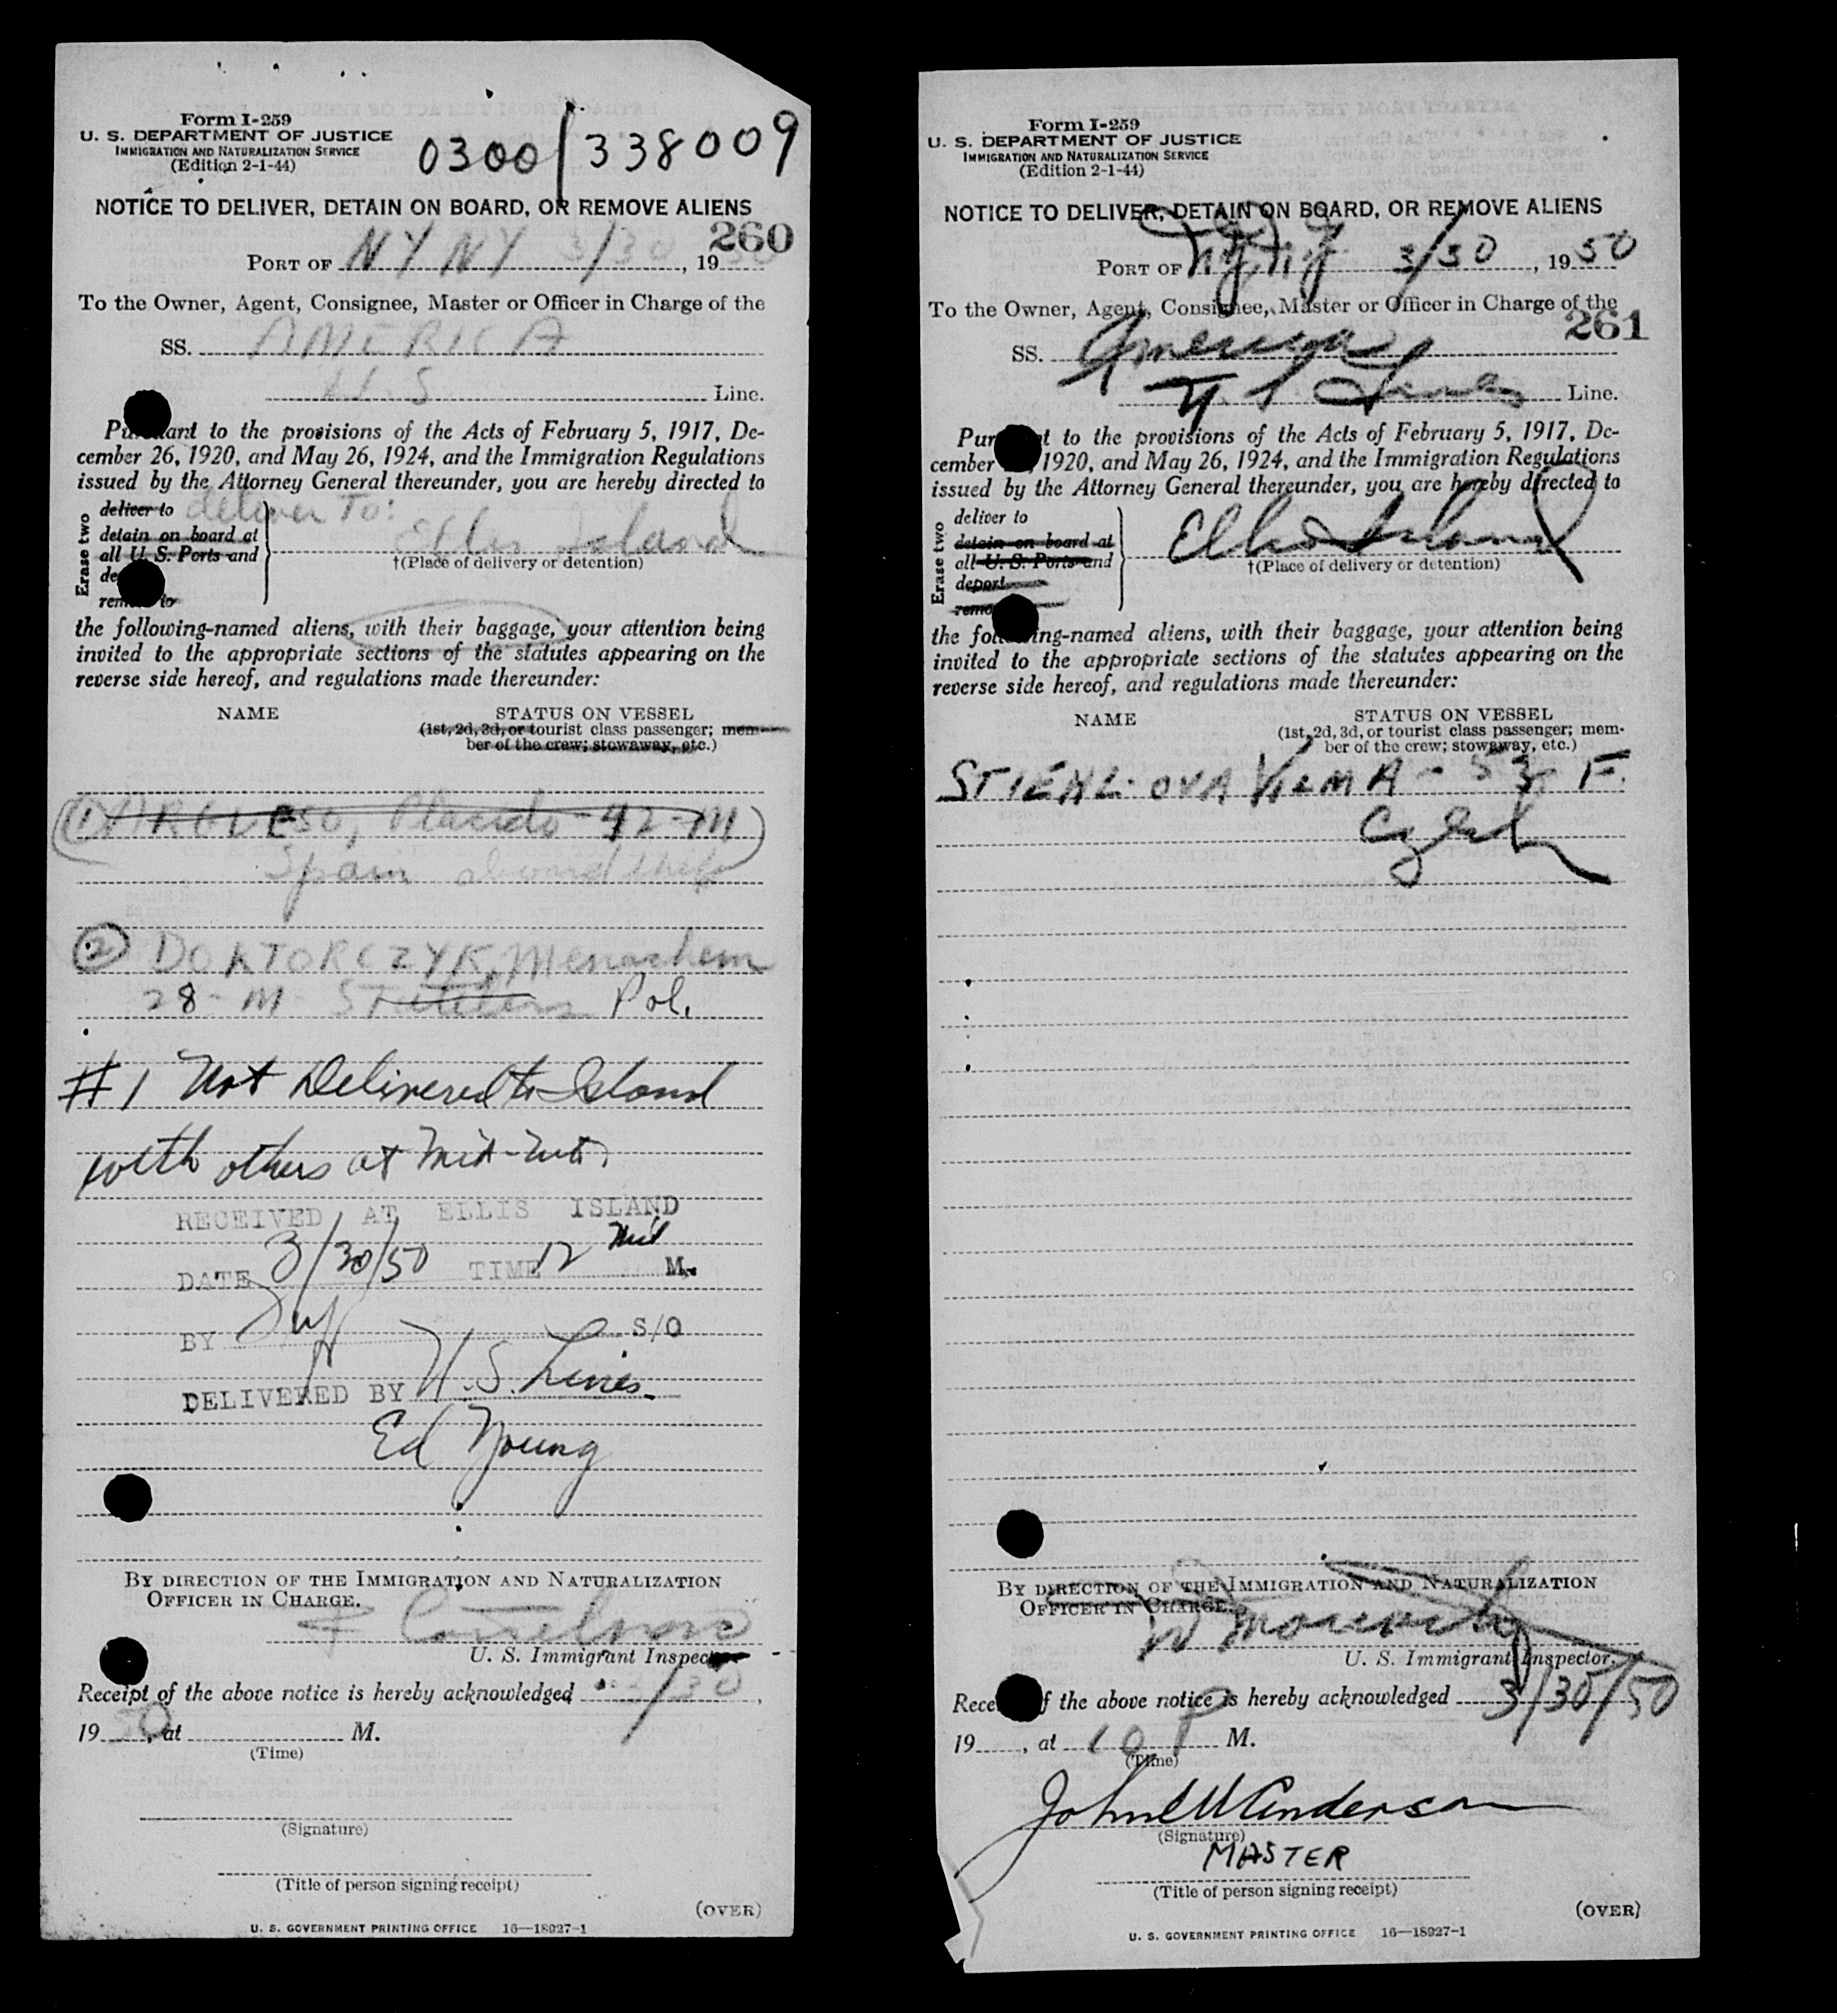 Form I-259
U. S. DEPARTMENT OF JUSTICE
IMMIGRATION AND NATURALIZATION SERVICE
(Edition 2-1-44)
0300/338009
NOTICE TO DELIVER, DETAIN ON BOARD, OR REMOVE ALIENS
260
PORT OF NY NY 3/30, 1950
To the Owner, Agent, Consignee, Master or Officer in Charge of the
SS. AMERICA
U.S Line.
Pursuant to the provisions of the Acts of February 5, 1917, De-
cember 26, 1920, and May 26, 1924, and the Immigration Regulations
issued by the Attorney General thereunder, you are hereby directed to
Erase two
deliver to deliver To:
detain on board at
all U. S. Ports and
de
remove to
Ellis Island
†(Place of delivery or detention)
the following-named aliens, with their baggage, your attention being
invited to the appropriate sections of the statutes appearing on the
reverse side hereof, and regulations made thereunder:
NAME STATUS ON VESSEL
(1st, 2d, 3d, or tourist class passenger; mem-
ber of the crew; stowaway, etc.)
(1) ARGUESO, Placido - 42 - M
Spain
(2) DOKTORCZYK, Menachem
28 - M Pol.
#1 Not Delivered to Island
with others at Mid-nite.
RECEIVED AT ELLIS ISLAND
DATE 3/30/50 TIME 12 Mid M.
BY S/O
DELIVERED BY U.S. Lines
Ed Young
BY DIRECTION OF THE IMMIGRATION AND NATURALIZATION
OFFICER IN CHARGE.
U. S. Immigrant Inspector
Receipt of the above notice is hereby acknowledged 3/30,
1950, at M.
(Time)
(Signature)
(Title of person signing receipt)
(OVER)
U. S. GOVERNMENT PRINTING OFFICE 16—18927-1
Form I-259
U. S. DEPARTMENT OF JUSTICE
IMMIGRATION AND NATURALIZATION SERVICE
(Edition 2-1-44)
NOTICE TO DELIVER, DETAIN ON BOARD, OR REMOVE ALIENS
PORT OF N.Y. N.Y. 3/30, 1950
To the Owner, Agent, Consignee, Master or Officer in Charge of the
261
SS. America
U S Lines Line.
Pursuant to the provisions of the Acts of February 5, 1917, De-
cember 26, 1920, and May 26, 1924, and the Immigration Regulations
issued by the Attorney General thereunder, you are hereby directed to
Erase two
deliver to
detain on board at
all U. S. Ports and
deport
remove
Ellis Island
†(Place of delivery or detention)
the following-named aliens, with their baggage, your attention being
invited to the appropriate sections of the statutes appearing on the
reverse side hereof, and regulations made thereunder:
NAME STATUS ON VESSEL
(1st, 2d, 3d, or tourist class passenger; mem-
ber of the crew; stowaway, etc.)
STIEHL-OVA VILMA - 53 F.
Czech
BY DIRECTION OF THE IMMIGRATION AND NATURALIZATION
OFFICER IN CHARGE.
U. S. Immigrant Inspector.
Receipt of the above notice is hereby acknowledged 3/30/50
19, at 10 P M.
(Time)
John W Anderson
(Signature)
MASTER
(Title of person signing receipt)
(OVER)
U. S. GOVERNMENT PRINTING OFFICE 16—18927-1